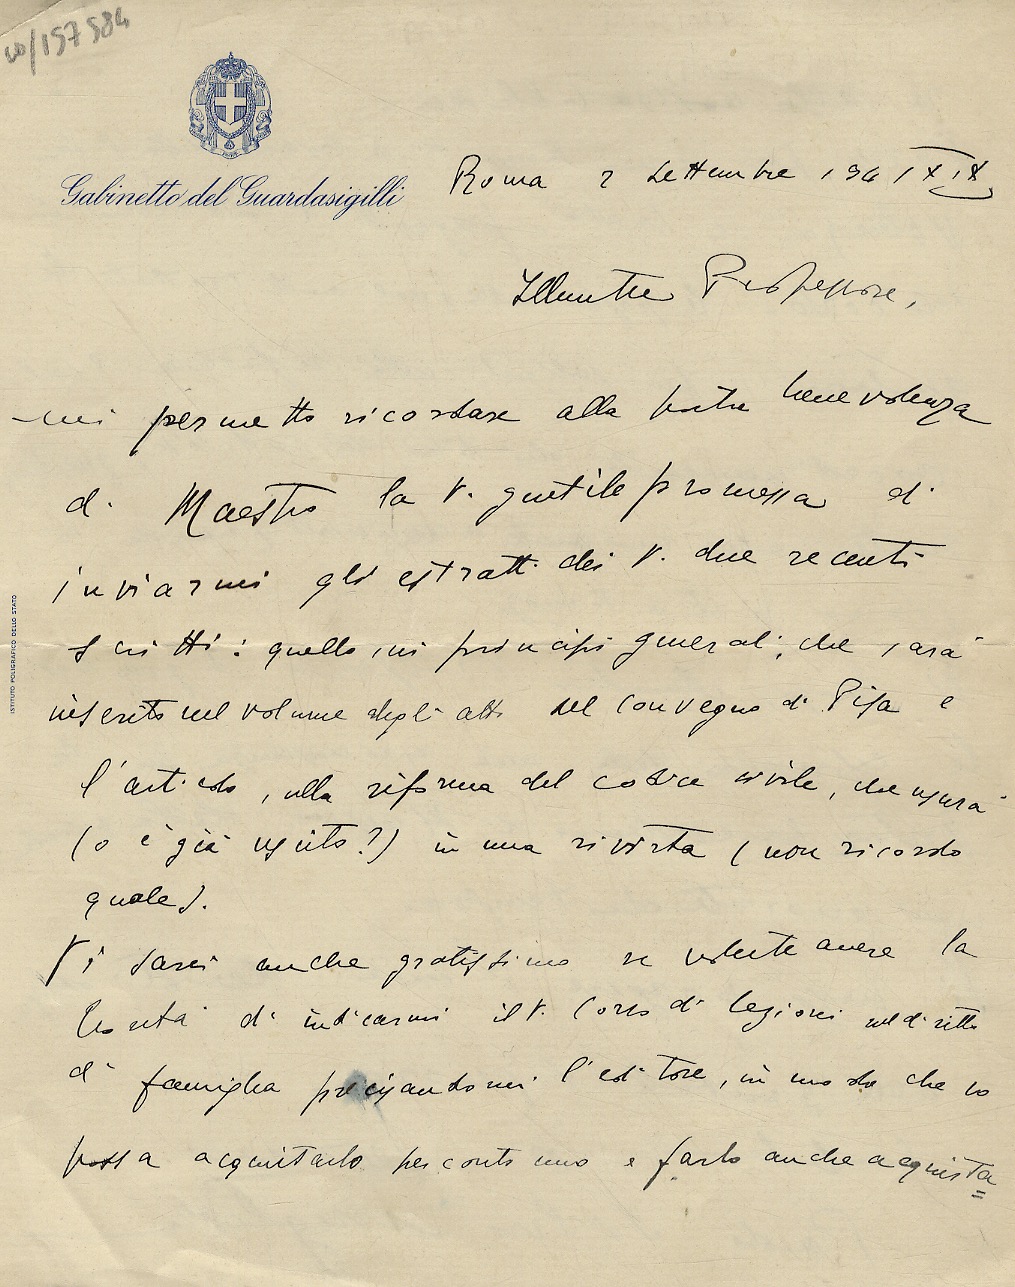 10/157584
Gabinetto del Guardasigilli
Roma 2 settembre 1941 XIX
Illustre Professore,
mi permetto ricordare alla vostra benevolenza
di Maestro la V. gentile promessa di
inviarmi gli estratti dei V. due recenti
scritti: quello sui principi generali, che sarà
inserito nel volume degli atti del convegno di Pisa e
l'articolo sulla riforma del codice civile, che uscirà
(o è già uscito?) in una rivista (non ricordo
quale).
Vi sarei anche gratissimo se voleste avere la
bontà di indicarmi il V. Corso di lezioni sul diritto
di famiglia precisandomi l'editore, in modo che io
possa acquistarlo per conto mio e farlo anche acquista=
ISTITUTO POLIGRAFICO DELLO STATO